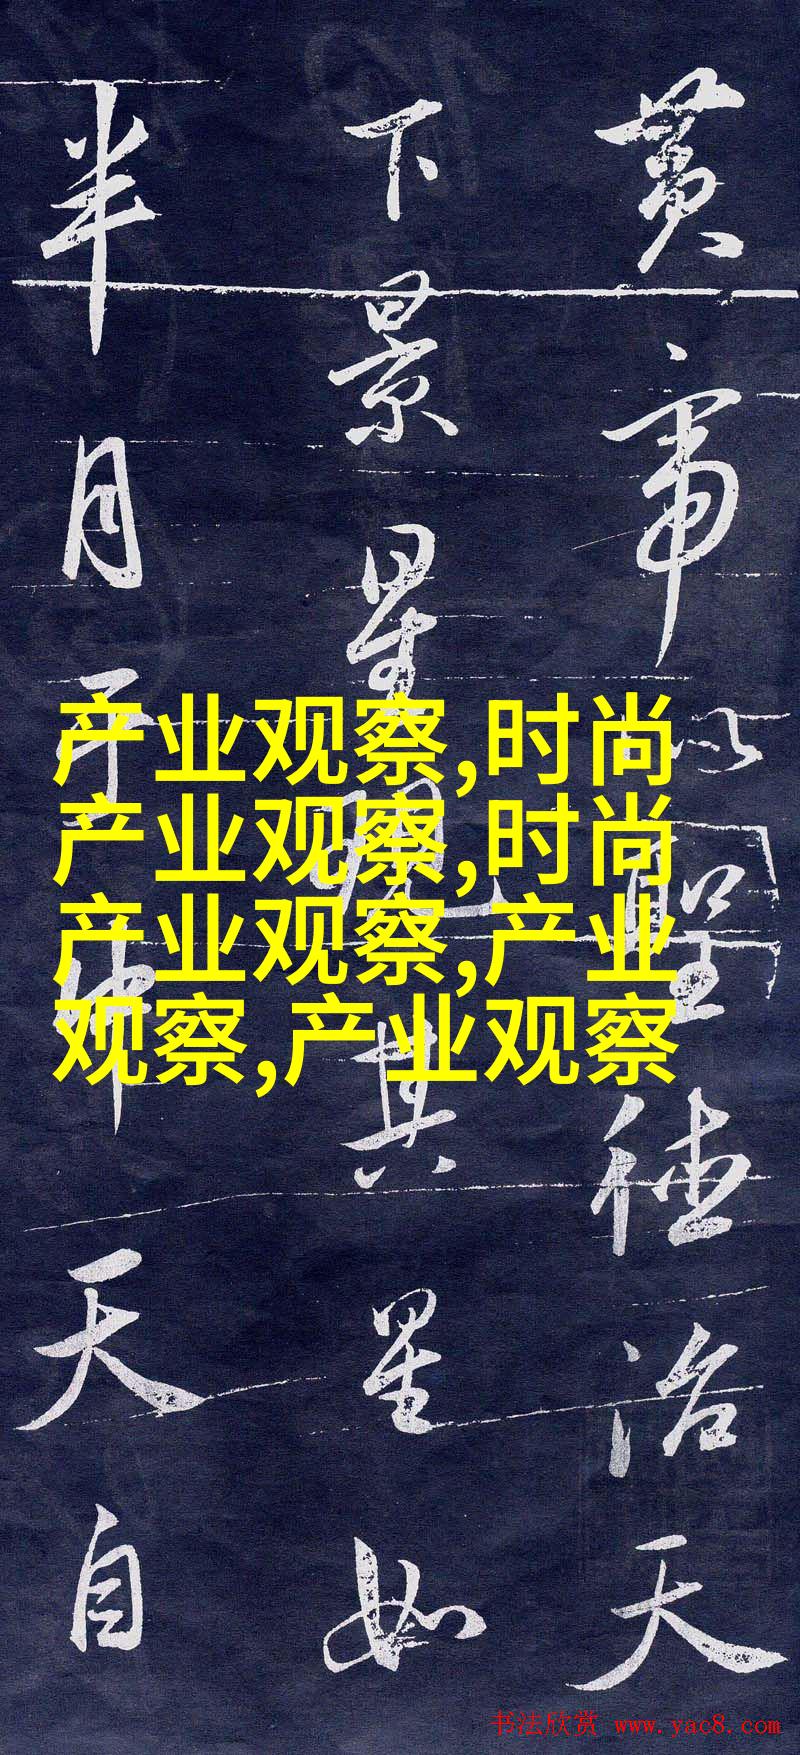 黄帝以聖德治天
下景星現其星如
半月于中天自
产业观察,时尚
产业观察,时尚
产业观察,产业
观察,产业观察
书法欣赏 www.yac8.com